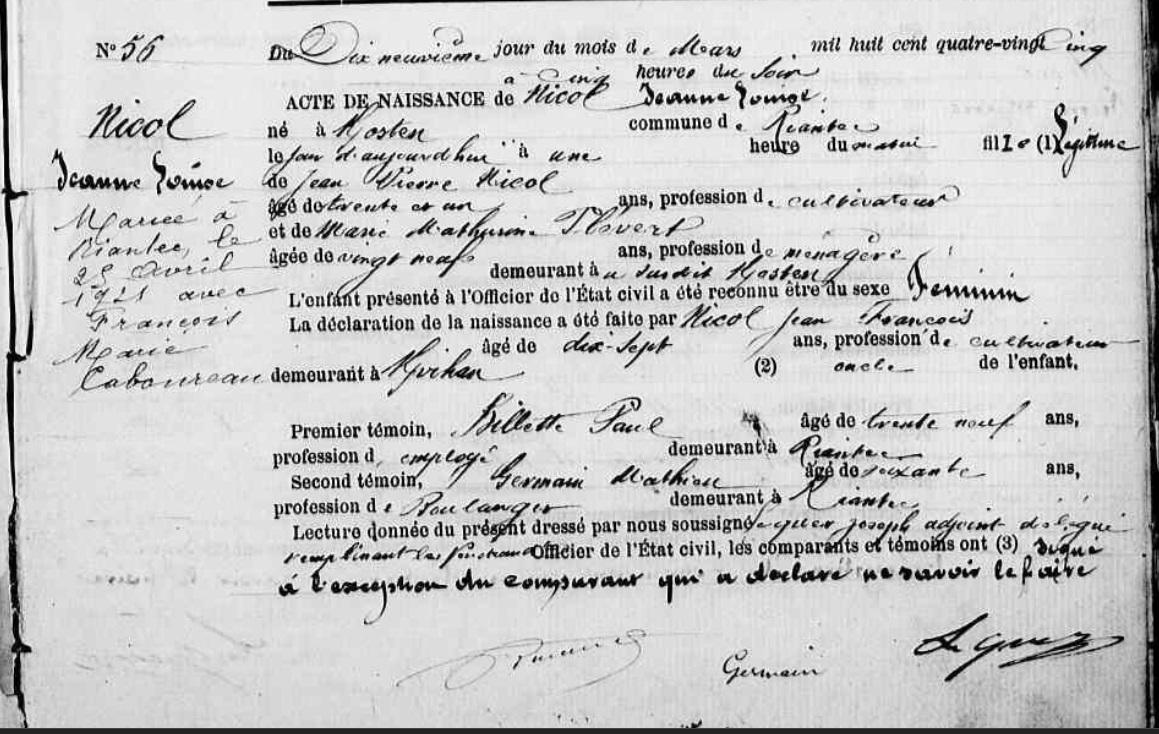 N° 56
Du Dix neuvième jour du mois de Mars mil huit cent quatre-vingt cinq
à cinq heures du soir
ACTE DE NAISSANCE de Nicol Jeanne Louise
né à Kosten commune de Riantec
le jour d'aujourd'hui à une heure du matin fille (1) Légitime
de Jean Pierre Nicol
âgé de trente et un ans, profession de cultivateur
et de Marie Mathurine
âgée de vingt neuf ans, profession de ménagère
demeurant à u susdit Kosten
L'enfant présenté à l'Officier de l'État civil a été reconnu être du sexe Féminin
La déclaration de la naissance a été faite par Nicol Jean François
âgé de dix-sept ans, profession de cultivateur
demeurant à (2) oncle de l'enfant.
Premier témoin, Billette Paul âgé de trente neuf ans,
profession d employé demeurant à Riantec
Second témoin, Germain Mathieu âgé de soixante ans,
profession de Boulanger demeurant à Riantec
Lecture donnée du présent dressé par nous soussigné Joseph adjoint délégué
remplissant les fonctions Officier de l'État civil, les comparants et témoins ont (3) signé
à l'exception du comparant qui a déclaré ne savoir le faire
Germain
Nicol
Jeanne Louise
Mariée à
Riantec, le
25 Avril
1921 avec
François
Marie